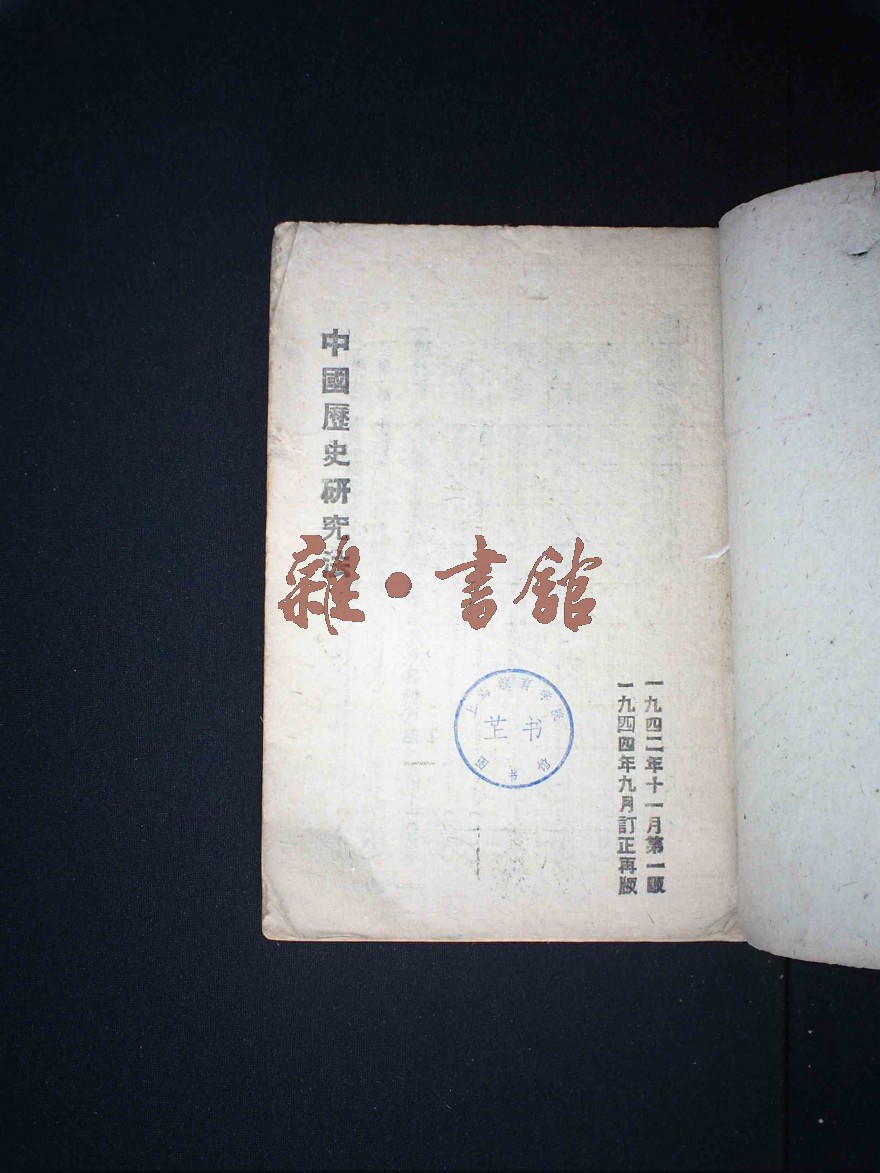 一九四二年十一月第一版
一九四四年九月訂正再版
中國歷史研究法
雜·書館
图书馆
书